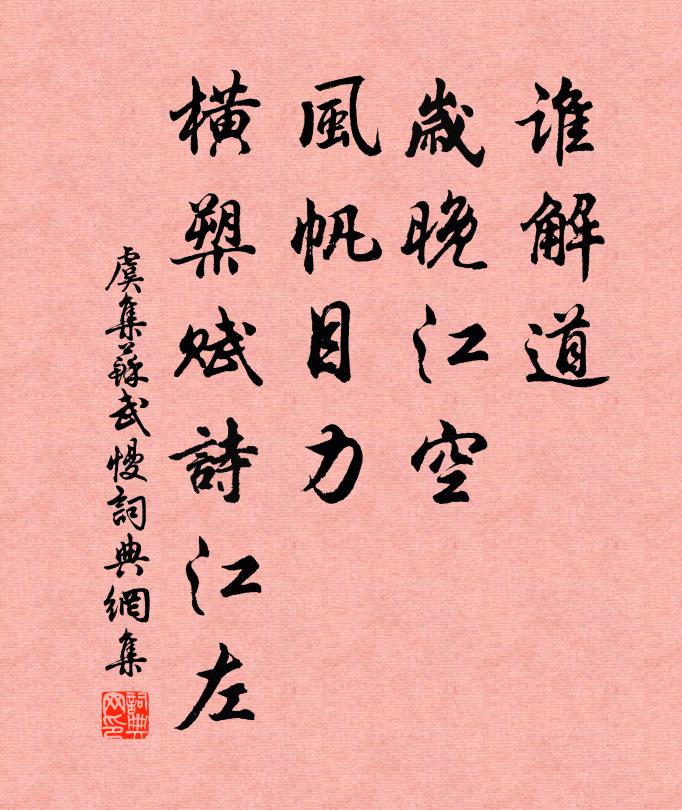 誰解道
歲晚江空
風帆目力
橫槊賦詩江左
虞集蘇武慢詞典網集
詞典网印